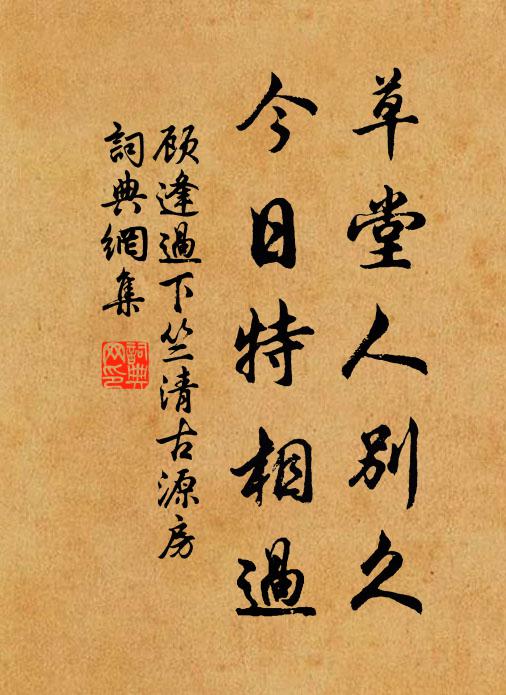 草堂人别久
今日特相過
顾逢過下竺清古源房
詞典網集
詞典網印